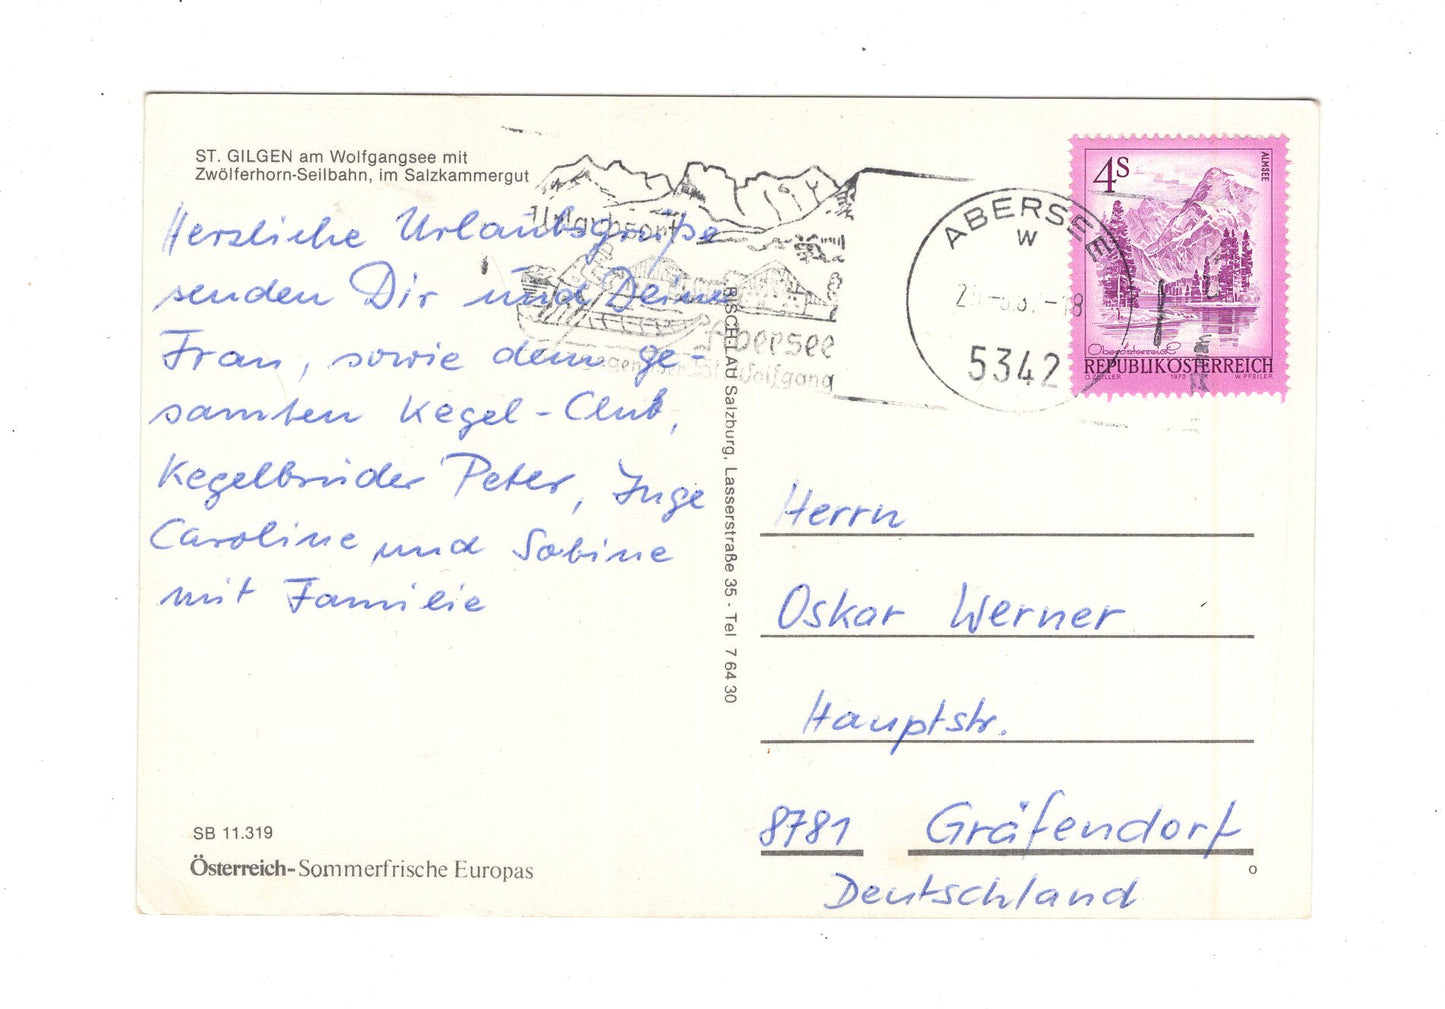 ST. GILGEN am Wolfgangsee mit
Zwölferhorn-Seilbahn, im Salzkammergut
Herzliche Urlaubsgrüße
senden Dir und Deine
Frau, sowie dem ge-
samten Kegel-Club,
Kegelbruder Peter, Inge
Caroline und Sabine
mit Familie
SB 11.319
Österreich-Sommerfrische Europas
Urlaubsort
Abersee
gegenüber St. Wolfgang
BISCHLAU Salzburg, Lasserstraße 35 - Tel 7 64 30
ABERSEE
W
5342
4S
ALMSEE
Oberösterreich
REPUBLIK ÖSTERREICH
O. ZEILLER 1973 W. PFEILER
Herrn
Oskar Werner
Hauptstr.
8781 Gräfendorf
Deutschland
o